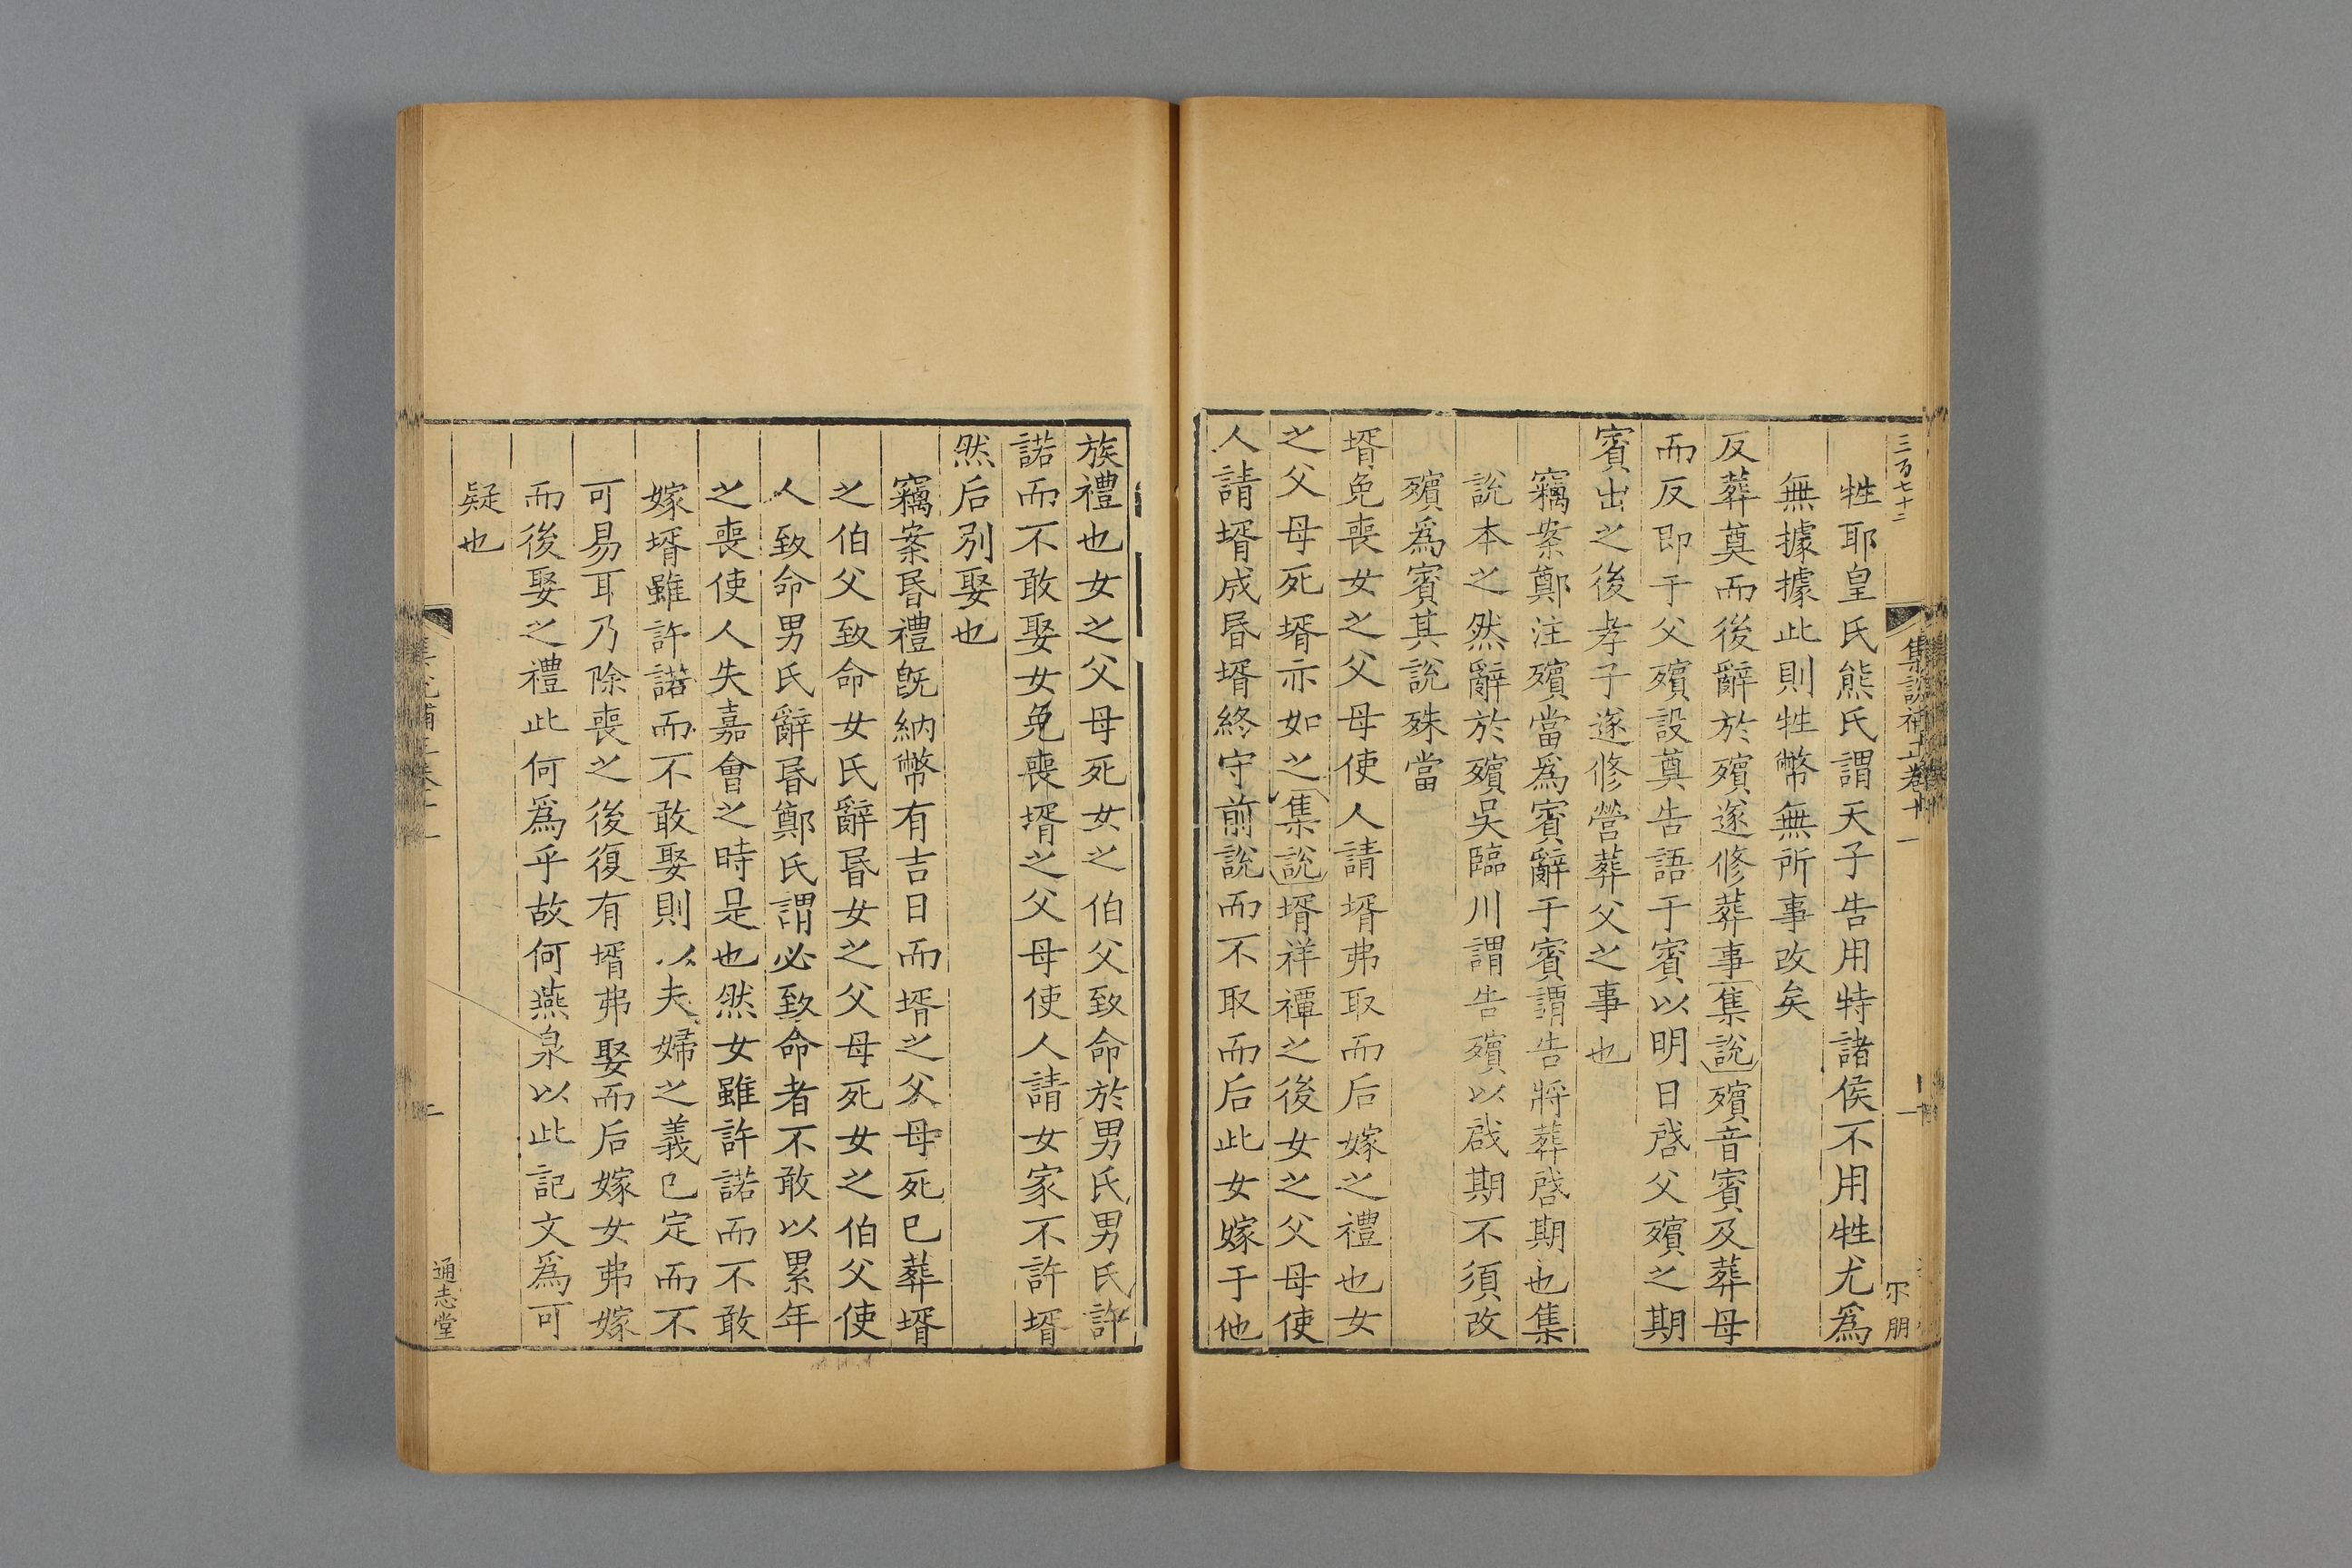 三百七十二
集說補正卷十一
一
牲耶皇氏熊氏謂天子告用特諸侯不用牲尤爲
無據據此則牲幣無所事改矣
反葬奠而後辭於殯遂修葬事集說殯音賓及葬母
而反即于父殯設奠告語于賓以明日啓父殯之期
賓出之後孝子遂修營葬父之事也
竊案鄭注殯當爲賓辭于賓謂告將葬啓期也集
說本之然辭於殯吳臨川謂告殯以啟期不須改
殯爲賓其說殊當
壻免喪女之父母使人請壻弗取而后嫁之禮也女
之父母死壻亦如之集說壻祥禫之後女之父母使
人請壻成昬壻終守前說而不取而后此女嫁于他
族禮也女之父母死女之伯父致命於男氏男氏許
諾而不敢娶女免喪壻之父母使人請女家不許壻
然后別娶也
竊案昬禮旣納幣有吉日而壻之父母死已葬壻
之伯父致命女氏辭昬女之父母死女之伯父使
人致命男氏辭昬鄭氏謂必致命者不敢以累年
之喪使人失嘉會之時是也然女雖許諾而不敢
嫁壻雖許諾而不敢娶則以夫婦之義已定而不
可易耳乃除喪之後復有壻弗娶而后嫁女弗嫁
而後娶之禮此何爲乎故何燕泉以此記文爲可
疑也
通志堂